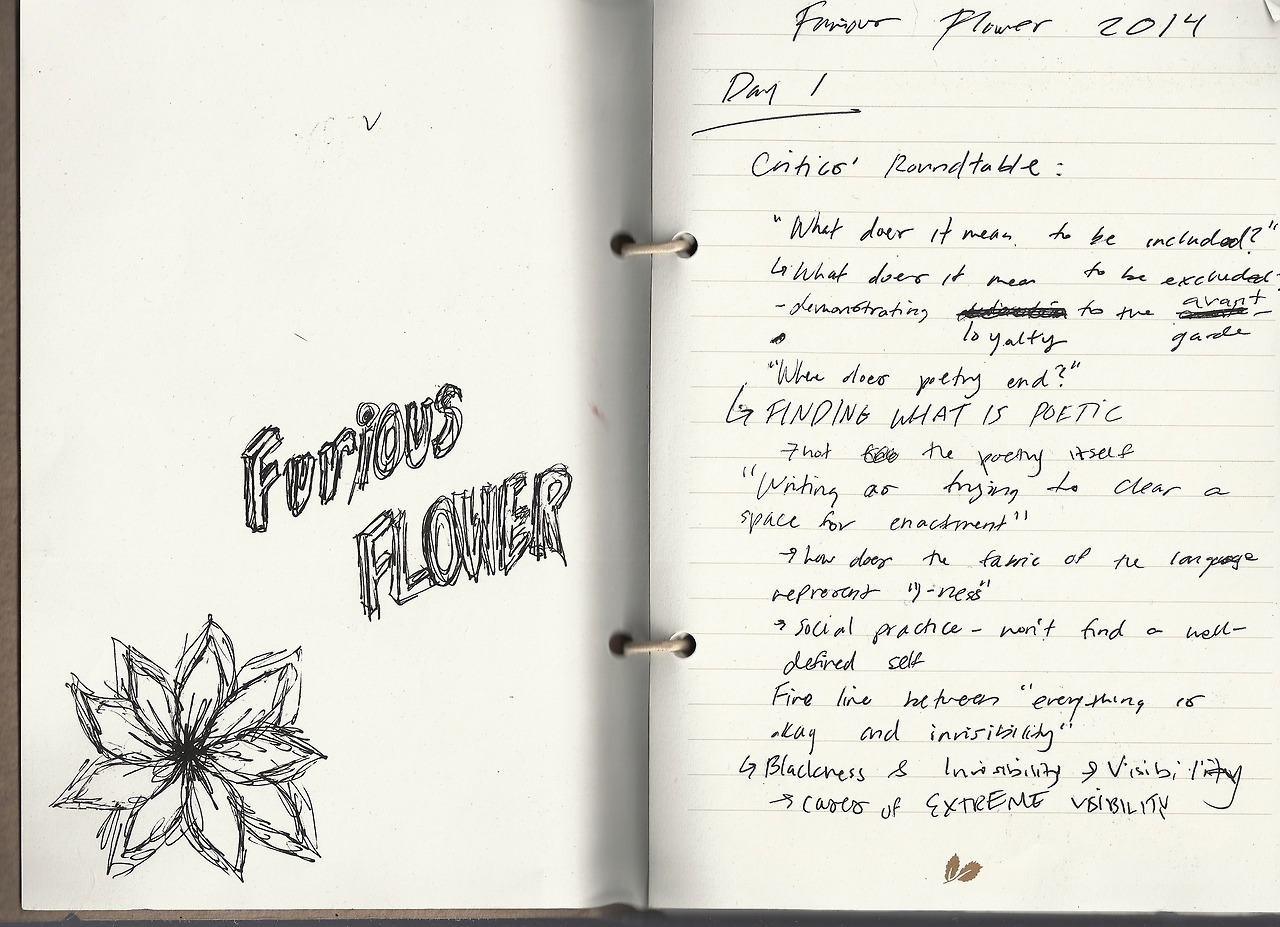 Furious
FLOWER
Furious Flower 2014
Day 1
Critics' Roundtable:
"What does it mean to be included?"
↳ What does it mean to be excluded?
- demonstrating loyalty to the avant-
garde
"Where does poetry end?"
↳ FINDING WHAT IS POETIC
→ not the poetry itself
"Writing as trying to clear a
space for enactment"
→ how does the fabric of the language
represent "I-ness"
→ social practice - won't find a well-
defined self
Fine line between "everything is
okay and invisibility"
↳ Blackness & Invisibility → Visibility
→ cases of EXTREME VISIBILITY